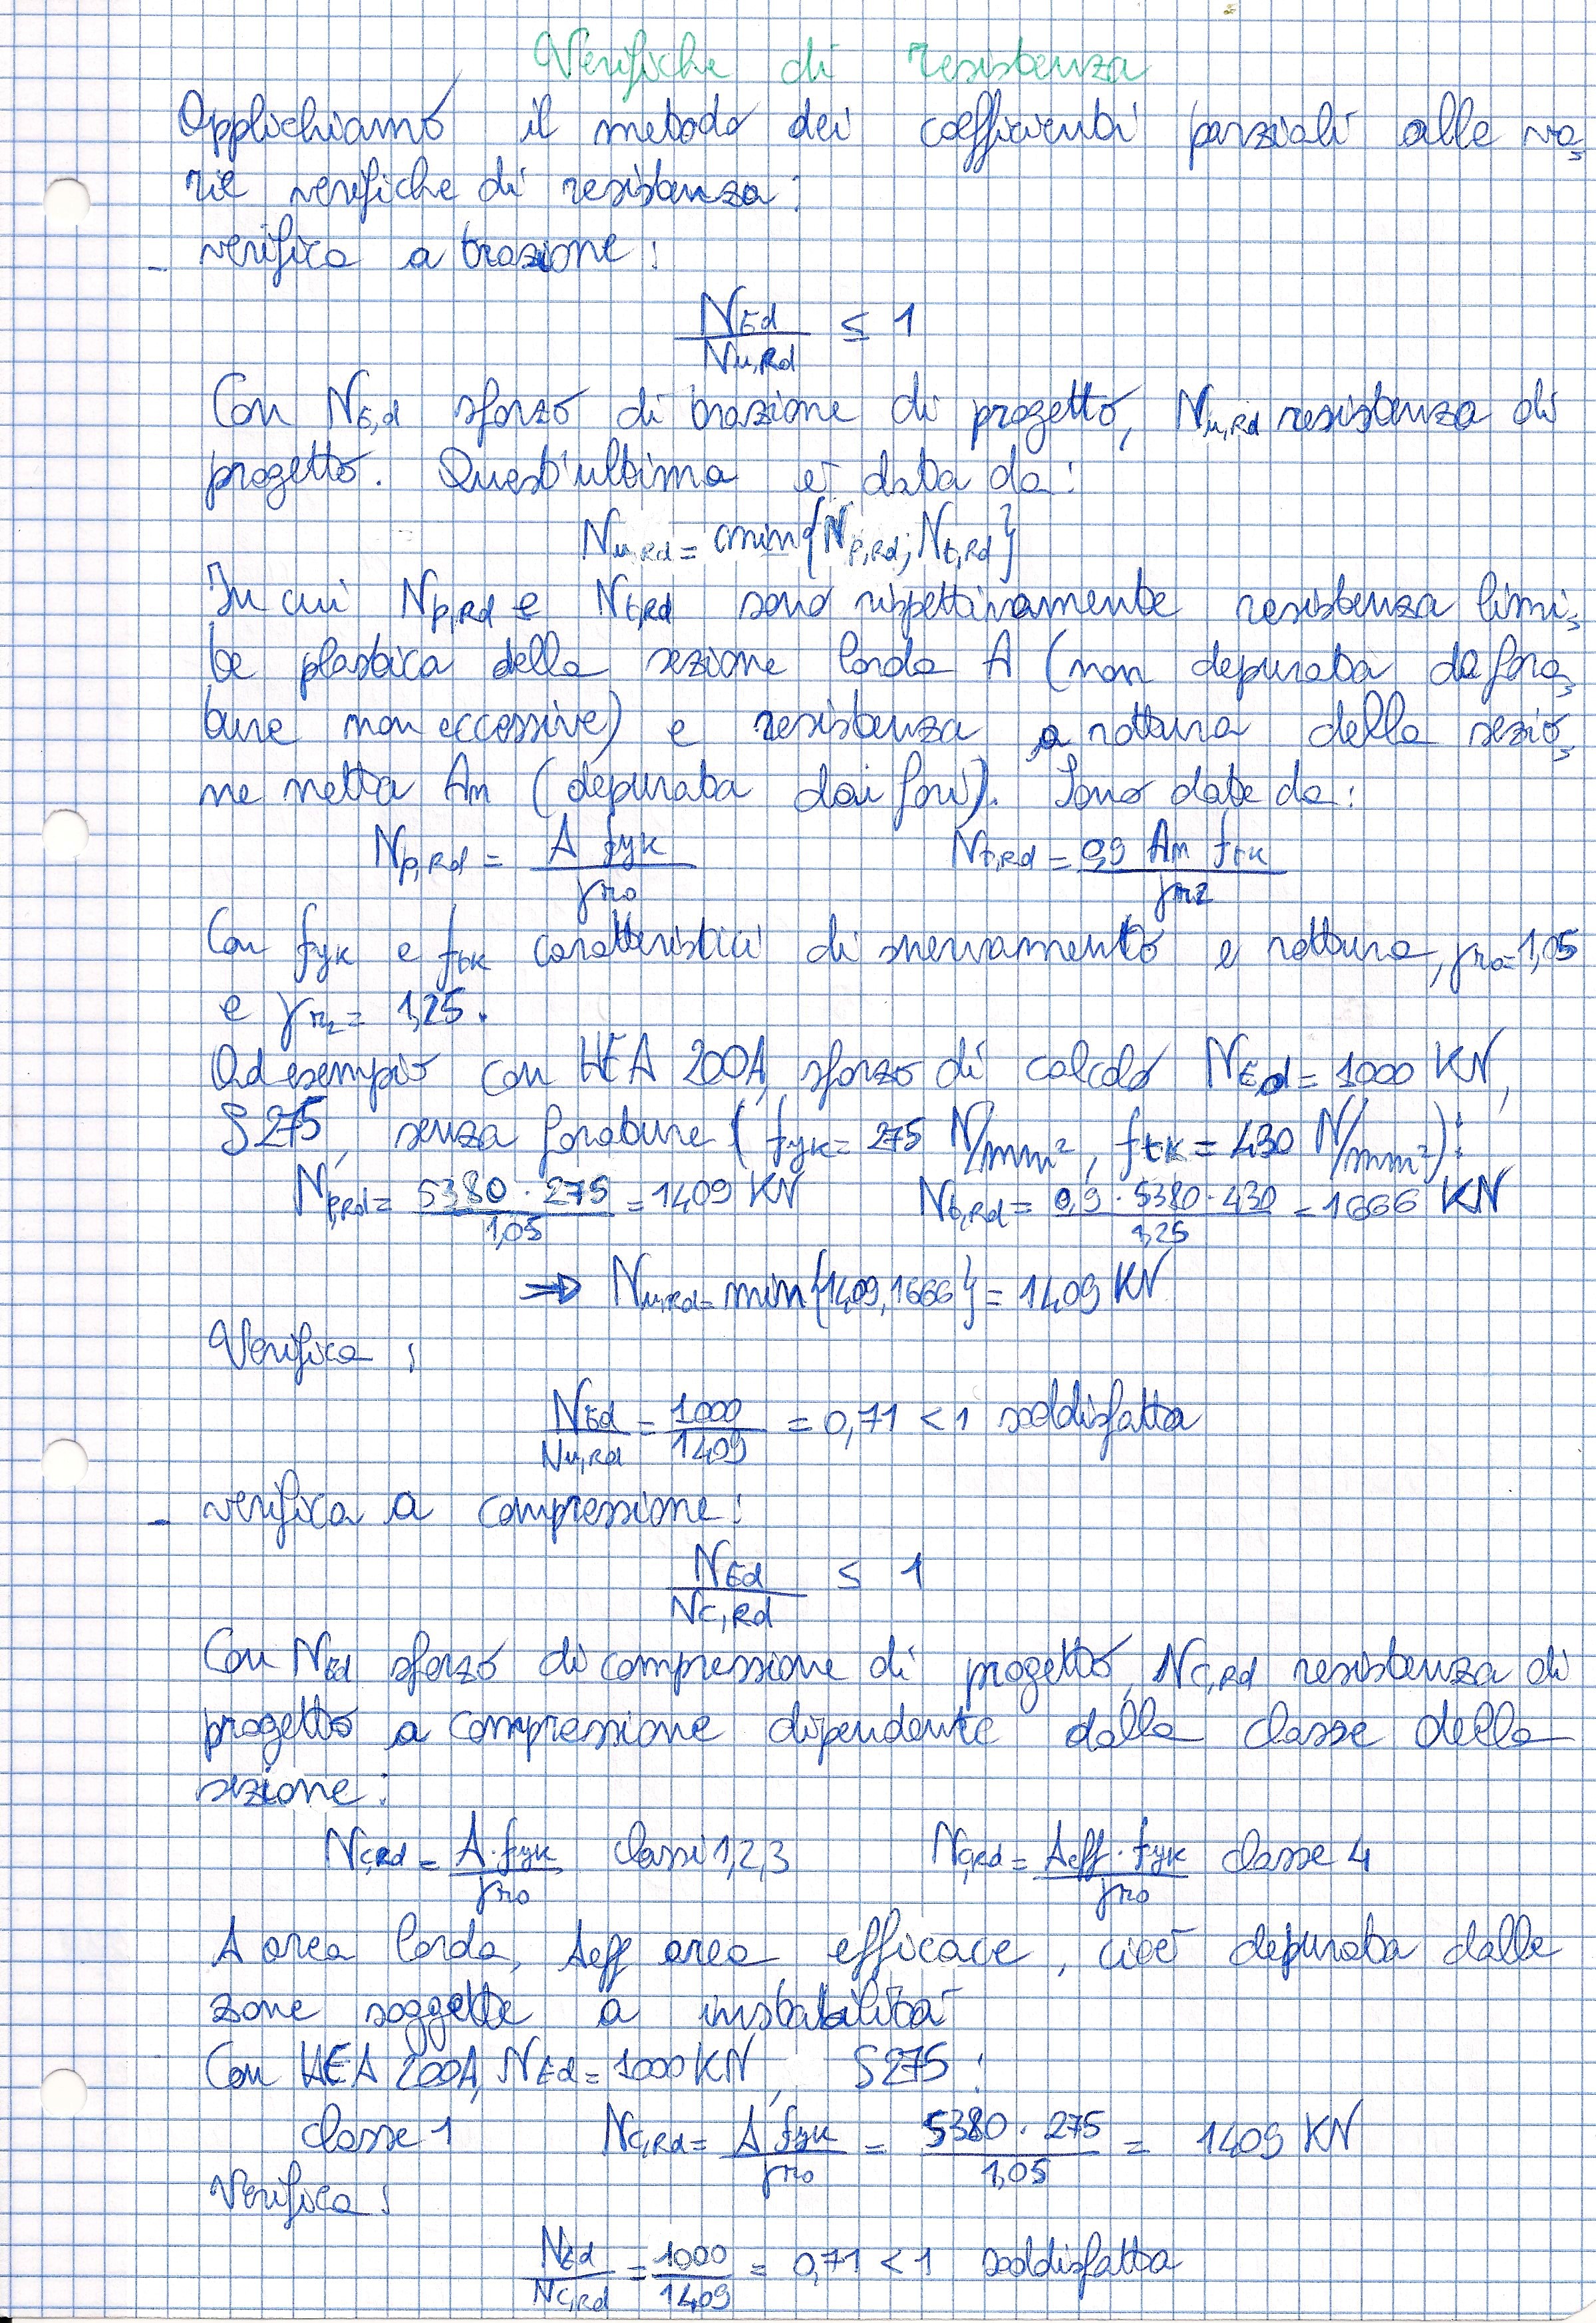 Verifiche di resistenza
Applichiamo il metodo dei coefficienti parziali alle va-
rie verifiche di resistenza:
- verifica a trazione:
NEd / Nu,Rd ≤ 1
Con NE,d sforzo di trazione di progetto, Nu,Rd resistenza di
progetto. Quest'ultima è data da:
Nu,Rd = min{Np,Rd; Nt,Rd}
In cui Np,Rd e Nt,Rd sono rispettivamente resistenza limi-
te plastica della sezione lorda A (non depurata da fora-
ture non eccessive) e resistenza a rottura della sezio-
ne netta An (depurata dai fori). Sono date da:
Np,Rd = A fyk / γM0    Nt,Rd = 0,9 An ftk / γM2
Con fyk e ftk caratteristici di snervamento e rottura, γM0=1,05
e γM2 = 1,25.
Ad esempio con HEA 200A, sforzo di calcolo NEd = 1000 KN,
S275, senza forature (fyk = 275 N/mm², ftk = 430 N/mm²):
Np,Rd = 5380 · 275 / 1,05 = 1409 KN    Nt,Rd = 0,9 · 5380 · 430 / 1,25 = 1666 KN
⇒ Nu,Rd = min{1409, 1666} = 1409 KN
Verifica:
NEd / Nu,Rd = 1000 / 1409 = 0,71 < 1 soddisfatta
- verifica a compressione:
NEd / Nc,Rd ≤ 1
Con NEd sforzo di compressione di progetto, Nc,Rd resistenza di
progetto a compressione dipendente dalla classe della
sezione:
Nc,Rd = A · fyk / γM0 classi 1,2,3    Nc,Rd = Aeff · fyk / γM0 classe 4
A area lorda, Aeff area efficace, cioè depurata dalle
zone soggette a instabilità
Con HEA 200A, NEd = 1000 KN, S275:
classe 1    Nc,Rd = A fyk / γM0 = 5380 · 275 / 1,05 = 1409 KN
Verifica:
NEd / Nc,Rd = 1000 / 1409 = 0,71 < 1 soddisfatta